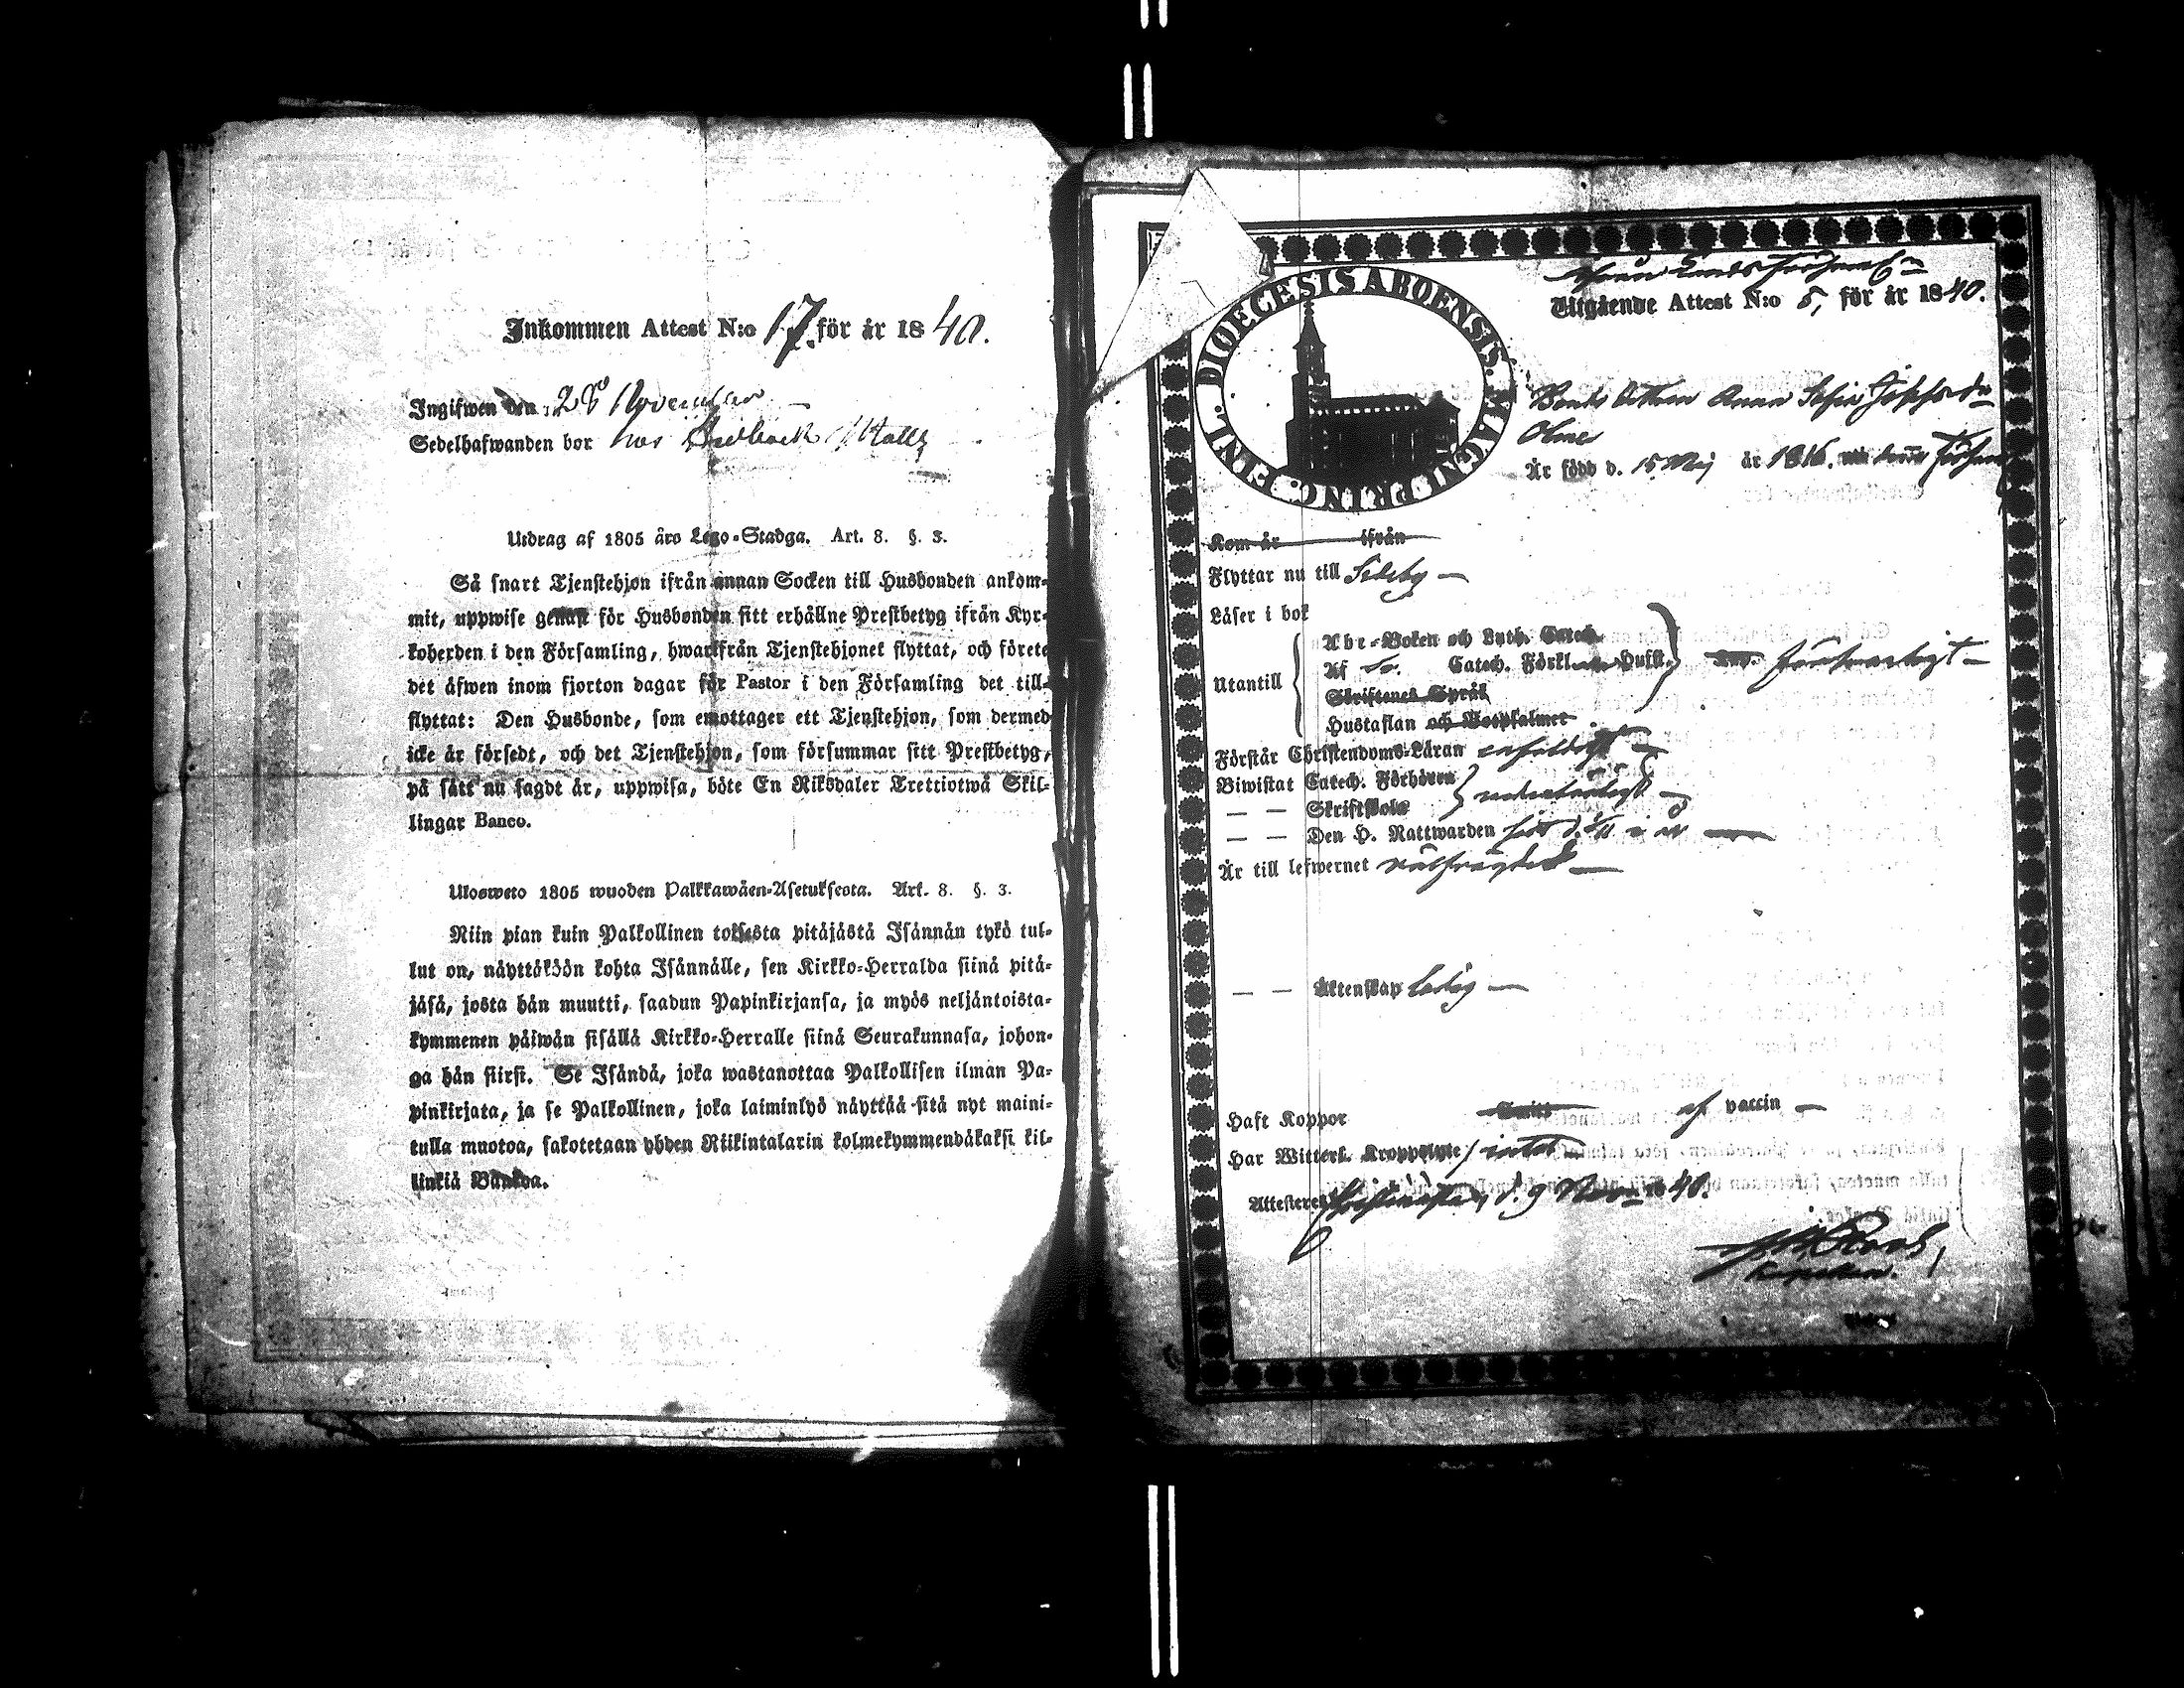 Inkommen Attest N:o 17. för år 1840.
Ingifwen den 28 November
Sedelhafwanden bor hos
Utdrag af 1805 års Lego-Stadga. Art. 8. §. 3.
Så snart Tjenstehjon ifrån annan Socken till Husbonden ankom-
mit, uppwise genast för Husbonden sitt erhållne Prestbetyg ifrån Kyr-
koherden i den Församling, hwarifrån Tjenstehjonet flyttat, och förete
det äfwen inom fjorton dagar för Pastor i den Församling det till-
flyttat: Den Husbonde, som emottager ett Tjenstehjon, som dermed
icke är försedt, och det Tjenstehjon, som försummar sitt Prestbetyg,
på sätt nu sagdt är, uppwisa, böte En Riksdaler Trettiotwå Skil-
lingar Banco.
Ulosweto 1805 wuoden Palkkawäen-Asetuksesta. Art. 8. §. 3.
Niin pian kuin Palkollinen toisesta pitäjästä Isännän tykö tul-
lut on, näyttäköön kohta Isännälle, sen Kirkko-Herralda siinä pitä-
jäsä, josta hän muutti, saadun Papinkirjansa, ja myös neljäntoista-
kymmenen päiwän sisällä Kirkko-Herralle siinä Seurakunnasa, johon-
ga hän siirsi. Se Isändä, joka wastanottaa Palkollisen ilman Pa-
pinkirjata, ja se Palkollinen, joka laiminlyö näyttää sitä nyt maini-
tulla muotoa, sakotetaan yhden Riikintalarin kolmekymmendäkaksi kil-
linkiä Bankoa.
DIOECESIS ABOENSIS. MAGNI PRINC. FINL.
Utgående Attest N:o 5, för år 1840.
Bonde dottren Anna Sofia
Är född d. 15 Maj år 1816.
Kom år ifrån
Flyttar nu till Sideby
Läser i bok
Utantill
Abc-Boken och Luth. Catech.
Af Sv. Catech. Förkl. Hust.
Skriftenes Språk
Hustaflan och Botpsalmer
försvarligt
Förstår Christendoms-Läran enfaldigt
Biwistat Catech. Förhören
— — Skriftskola
— — Den H. Nattwarden
Är till lefwernet välfrägdad
— — Äktenskap ledig
Haft Koppor af vaccin
Har Witterl. Kroppslyte intet
Attesterar Christinestad, d. 9 Nov. 1840.